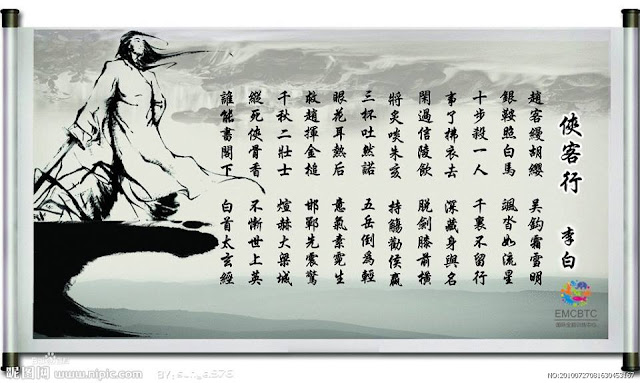 俠客行 李白
趙客縵胡纓 吳鉤霜雪明
銀鞍照白馬 颯沓如流星
十步殺一人 千裏不留行
事了拂衣去 深藏身與名
閑過信陵飲 脫劍膝前橫
將炙啖朱亥 持觴勸侯嬴
三杯吐然諾 五岳倒為輕
眼花耳熱后 意氣素霓生
救趙揮金槌 邯鄲先震驚
千秋二壯士 煊赫大梁城
縱死俠骨香 不慚世上英
誰能書閣下 白首太玄經
EMCBTC
昵图网 www.nipic.com
NO:20100727081630453167